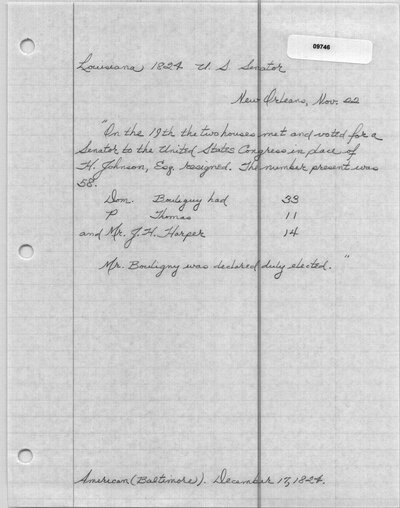 09746
Louisiana 1824 U. S. Senator
New Orleans, Nov. 22
"On the 19th the two houses met and voted for a
Senator to the United States Congress in place of
H. Johnson, Esq. resigned. The number present was
58.
Dom. Bouligny had 33
P Thomas 11
and Mr. J. H. Harper 14
Mr. Bouligny was declared duly elected."
American (Baltimore). December 17, 1824.